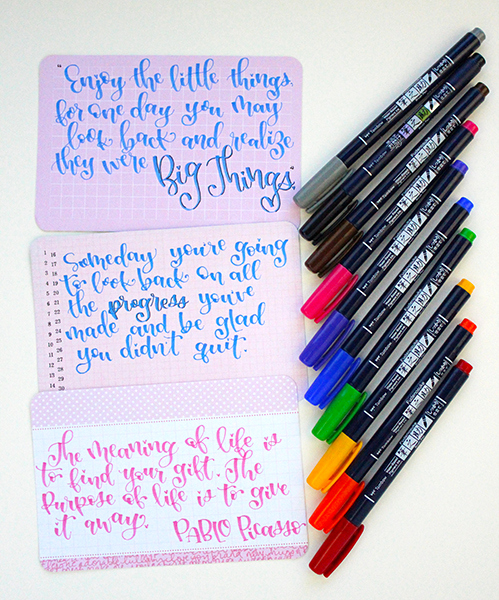 "Enjoy the little things
for one day you may
look back and realize
they were Big Things"
1 16
Someday you're going
to look back on all
the progress you've
made and be glad
you didn't quit.
14 29
The meaning of life is
to find your gift. The
Purpose of life is to give
it away. PABlO PICasso